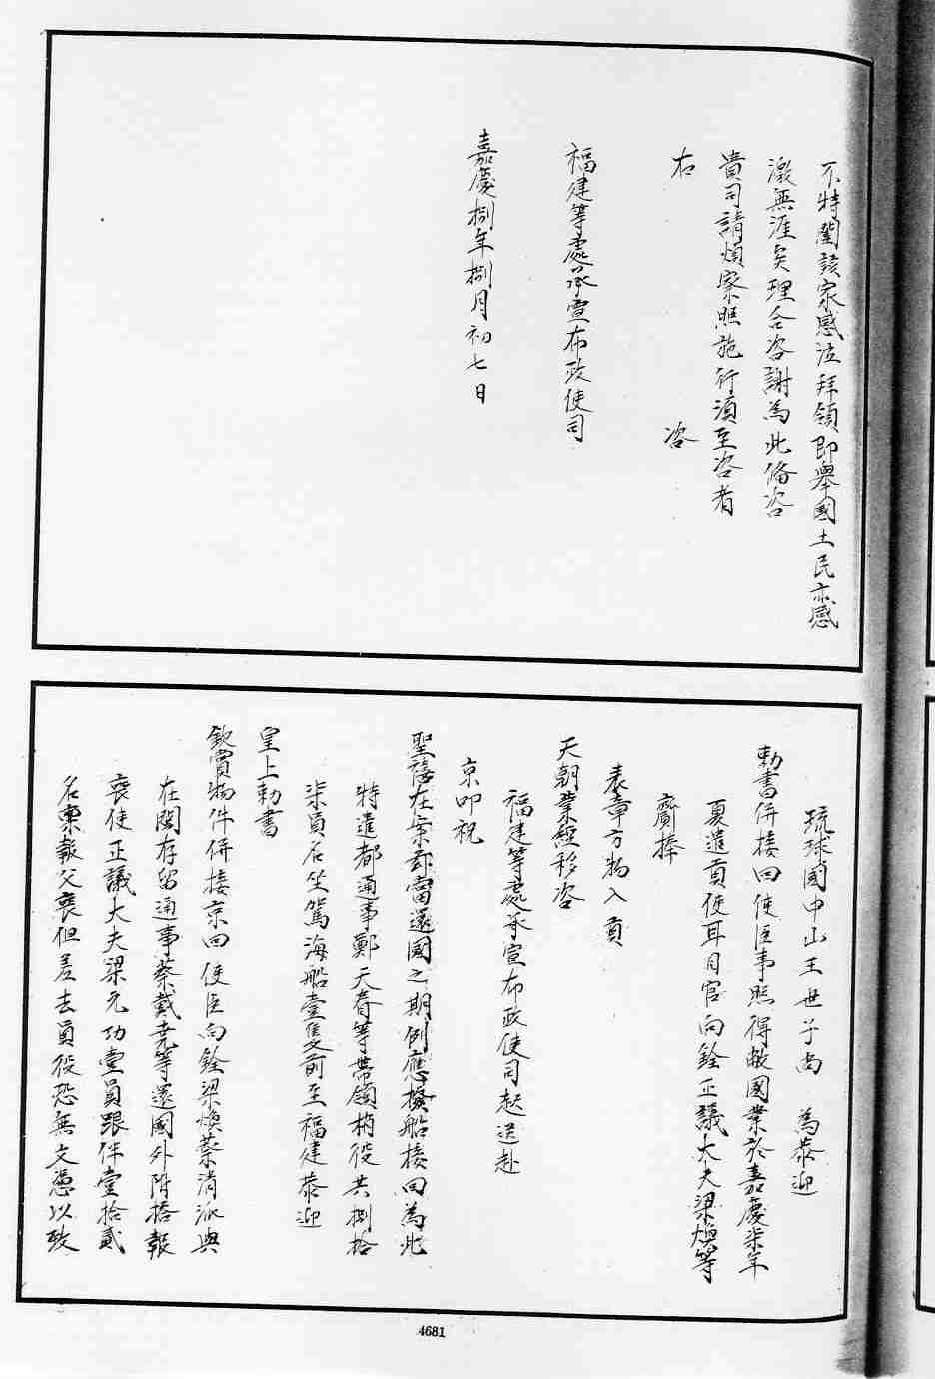 不特闔該家感泣拜領即舉國士民亦感
激無涯矣理合咨謝為此備咨
貴司請煩察照施行須至咨者
右 咨
福建等處承宣布政使司
嘉慶捌年捌月初七日
琉球國中山王世子尚 為恭迎
勅書併接回使臣事照得敝國業於嘉慶柒年
夏遣貢使耳目官向銓正議大夫梁煥等
齎捧
表章方物入貢
天朝業經移咨
福建等處承宣布政使司起送赴
京叩祝
聖禧在案茲當還國之期例應撥船接回為此
特遣都通事鄭天眷等帶領梢役共捌拾
柒員名坐駕海船壹隻前至福建恭迎
皇上勅書
欽賞物件併接京回使臣向銓梁煥蔡清派與
在閩存留通事蔡戴堯等還國外附搭報
喪使正議大夫梁元功壹員跟伴壹拾貳
名稟報父喪但差去員役恐無文憑以致
4681